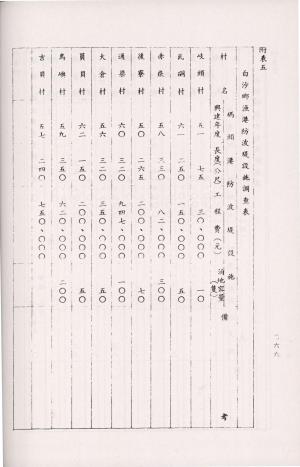 附表五
白沙鄉漁港防波堤設施調查表
村名 碼頭港防波堤設施 備考
興建年度 長度(公尺) 工程費(元) 泊地容量(隻)
歧頭村 五一 七五 三〇、〇〇〇 一〇
瓦硐村 六一 二五 一五〇、〇〇〇 五〇
赤崁村 五八 八二、〇〇〇 三〇〇
後寮村 五〇 二六五 二〇〇、〇〇〇 七〇
通梁村 六〇 三二〇 九四七、〇〇〇 一〇〇
大倉村 五六 三二〇 三五〇、〇〇〇 五〇
員貝村 六二 一五〇 二〇〇、〇〇〇 五〇
鳥嶼村 五九 三五〇 六二〇、〇〇〇 二〇〇
吉貝村 五七 二四〇 七五〇、〇〇〇